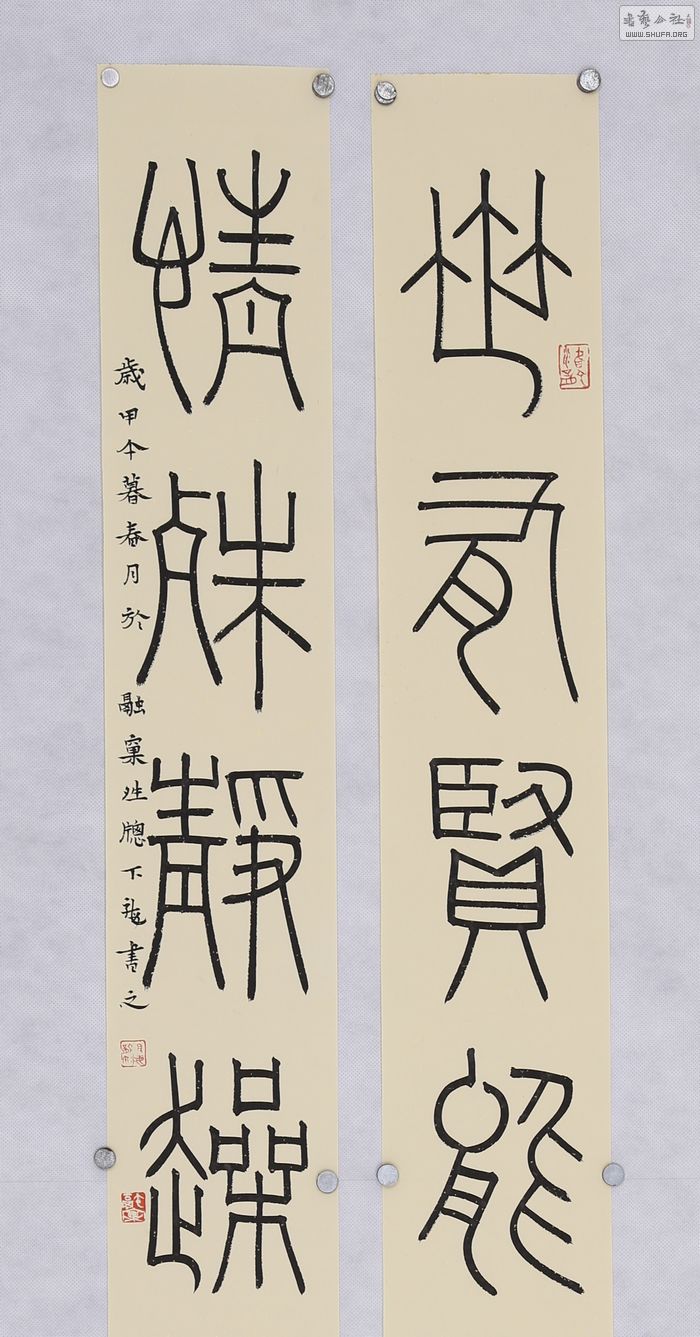 世有賢能
情殊靜躁
歲甲午暮春月於融窠牕下龍書之
书艺公社
WWW.SHUFA.ORG